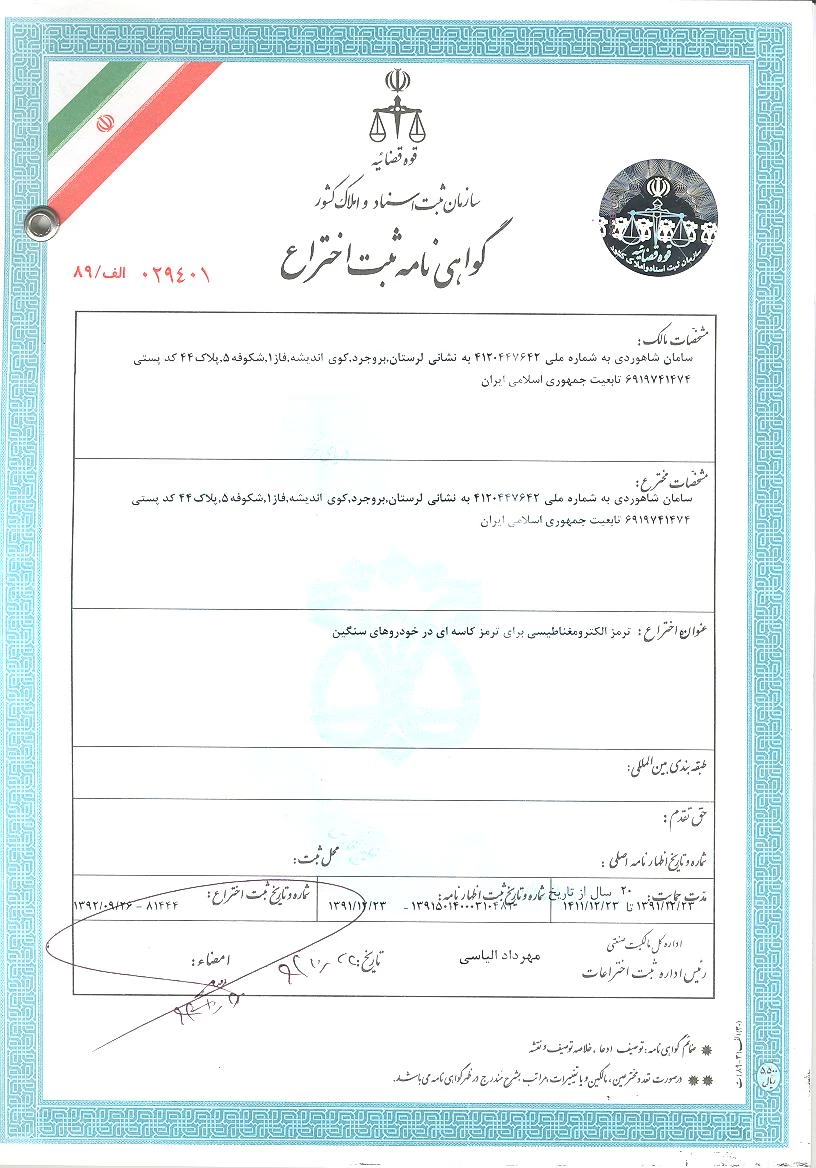 قوه قضائیه
سازمان ثبت اسناد و املاک کشور
گواهی نامه ثبت اختراع
۰۲۹۴۰۱ الف/۸۹
قوه قضائیه
سازمان ثبت اسناد و املاک کشور
مشخصات مالک:
سامان شاهوردی به شماره ملی ۴۱۲۰۴۴۷۶۴۲ به نشانی لرستان,بروجرد,کوی اندیشه,فاز۱,شکوفه ۵,پلاک ۴۴ کد پستی
۶۹۱۹۷۴۱۴۷۴ تابعیت جمهوری اسلامی ایران
مشخصات مخترع:
سامان شاهوردی به شماره ملی ۴۱۲۰۴۴۷۶۴۲ به نشانی لرستان,بروجرد,کوی اندیشه,فاز۱,شکوفه ۵,پلاک ۴۴ کد پستی
۶۹۱۹۷۴۱۴۷۴ تابعیت جمهوری اسلامی ایران
عنوان اختراع: ترمز الکترومغناطیسی برای ترمز کاسه ای در خودروهای سنگین
طبقه بندی بین المللی:
حق تقدم:
شماره و تاریخ اظهارنامه اصلی: محل ثبت:
مدت حمایت: ۲۰ سال از تاریخ
۱۳۹۱/۱۲/۲۳ تا ۱۴۱۱/۱۲/۲۳
شماره و تاریخ ثبت اظهارنامه:
۱۳۹۱/۱۲/۲۳
شماره و تاریخ ثبت اختراع:
۸۱۴۴۴ - ۱۳۹۲/۰۹/۲۶
اداره کل مالکیت صنعتی
رئیس اداره ثبت اختراعات
مهرداد الیاسی
تاریخ:
امضاء:
ضمائم گواهی نامه: توصیف، ادعا، خلاصه توصیف و نقشه
در صورت تعدد مخترعین، مالکین و یا تغییرات، مراتب بشرح مندرج در ظهر گواهی نامه می باشد.
۵,۵۰۰
ریال